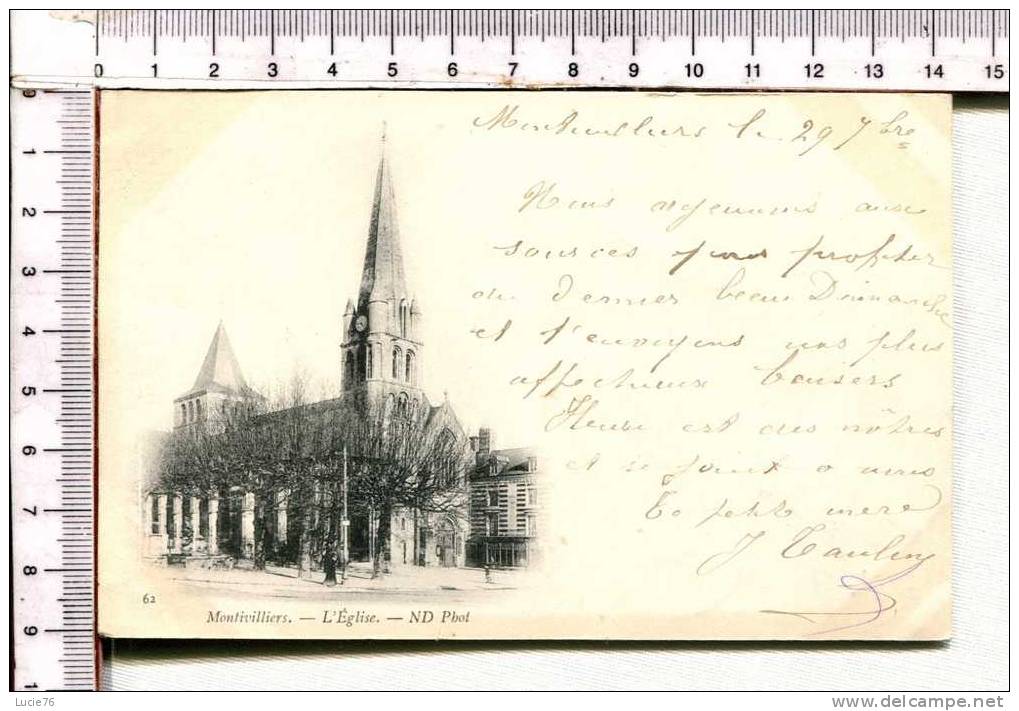 0 1 2 3 4 5 6 7 8 9 10 11 12 13 14 15
0
1
2
3
4
5
6
7
8
9
Montivilliers le 29 7bre
Nous venons aux
sources pour profiter
du dernier beau Dimanche
et t'envoyons nos plus
affectueux baisers
est des nôtres
et se joint a nous
Ta petite mère
J
62
Montivilliers. — L'Église. — ND Phot
Lucie76
www.delcampe.net